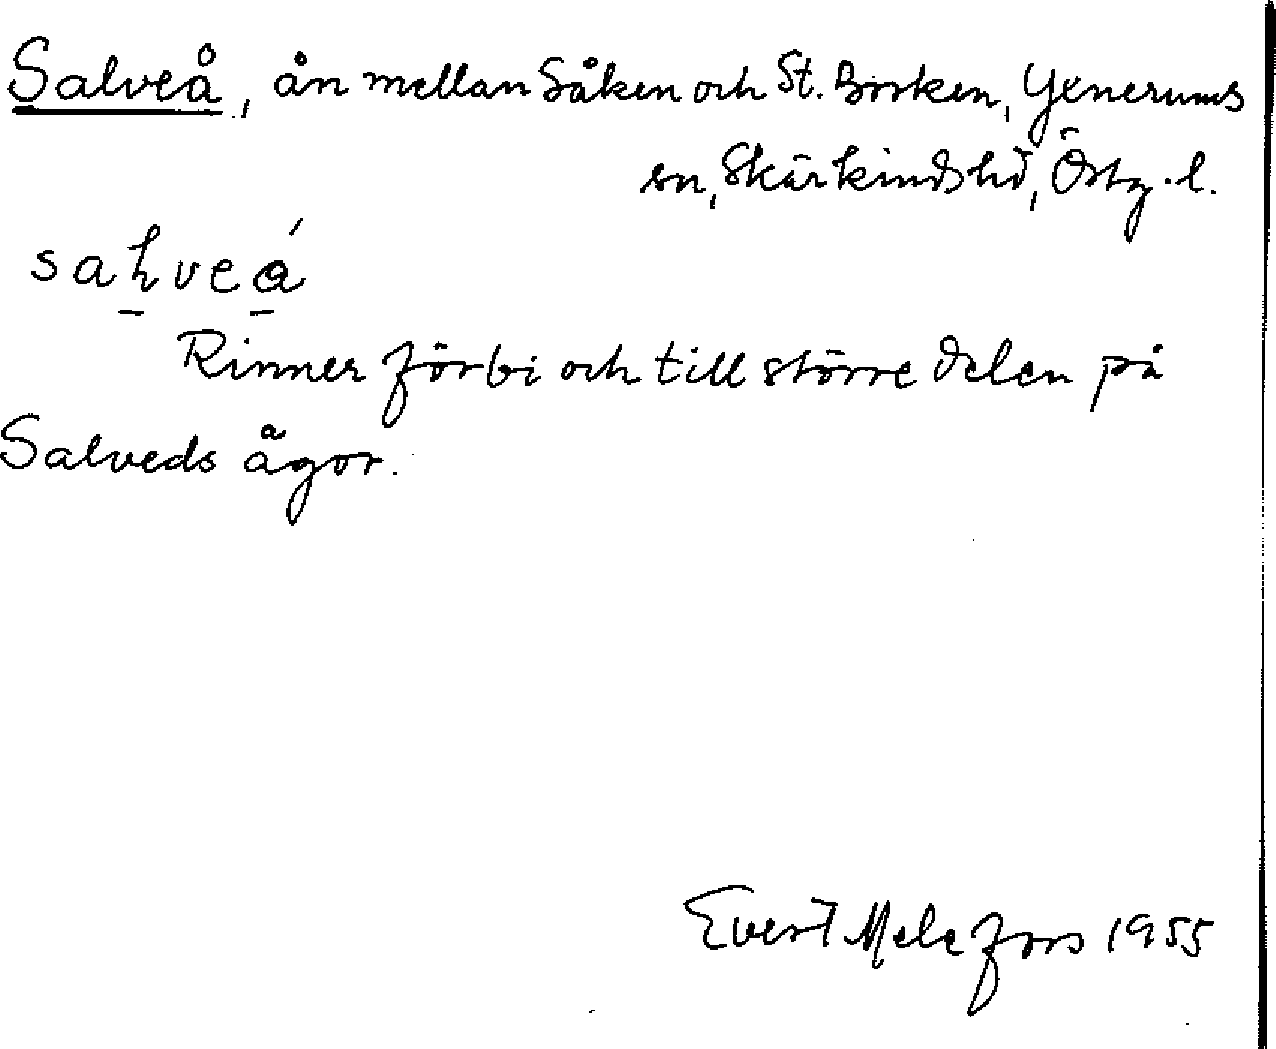 Salveå, ån mellan Såken och St. Borken, Yxnerums
sn, Skärkinds hd, Östg.l.
Rinner förbi och till större delen på
Salveds ägor.
Evert Melefors 1955